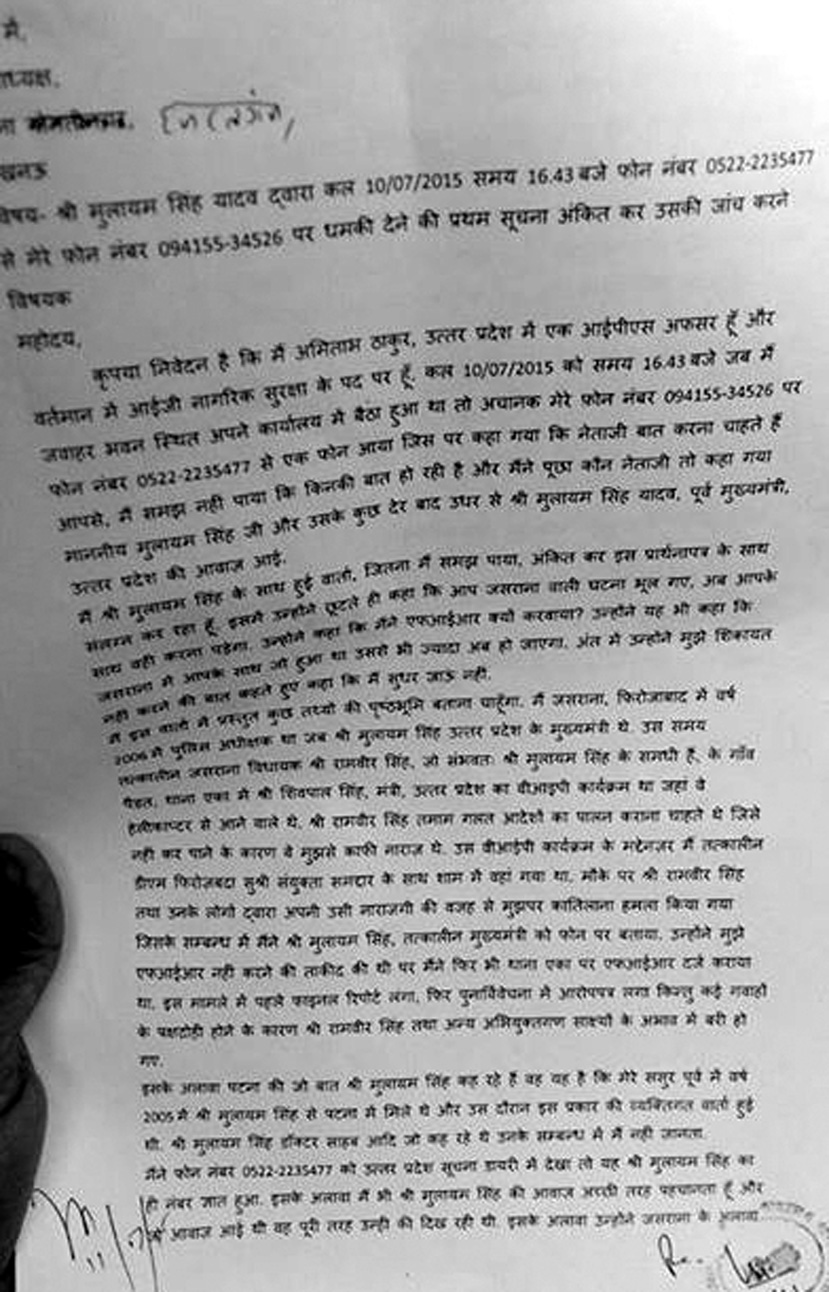 मे,
ाध्यक्ष,
ना हजरतगंज,
खनऊ
विषय- श्री मुलायम सिंह यादव द्वारा कल 10/07/2015 समय 16.43 बजे फोन नंबर 0522-2235477
से मेरे फोन नंबर 094155-34526 पर धमकी देने की प्रथम सूचना अंकित कर उसकी जांच करने
विषयक
महोदय,
कृपया निवेदन है कि मैं अमिताभ ठाकुर, उत्तर प्रदेश में एक आईपीएस अफसर हूँ और
वर्तमान में आईजी नागरिक सुरक्षा के पद पर हूँ. कल 10/07/2015 को समय 16.43 बजे जब मैं
जवाहर भवन स्थित अपने कार्यालय में बैठा हुआ था तो अचानक मेरे फोन नंबर 094155-34526 पर
फोन नंबर 0522-2235477 से एक फोन आया जिस पर कहा गया कि नेताजी बात करना चाहते हैं
आपसे, मैं समझ नहीं पाया कि किनकी बात हो रही है और मैंने पूछा कौन नेताजी तो कहा गया
माननीय मुलायम सिंह जी और उसके कुछ देर बाद उधर से श्री मुलायम सिंह यादव, पूर्व मुख्यमंत्री,
उत्तर प्रदेश की आवाज़ आई.
मैं श्री मुलायम सिंह के साथ हुई वार्ता, जितना मैं समझ पाया, अंकित कर इस प्रार्थनापत्र के साथ
संलग्न कर रहा हूँ. इसमें उन्होंने छूटते ही कहा कि आप जसराना वाली घटना भूल गए, अब आपके
साथ वही करना पड़ेगा. उन्होंने कहा कि मैंने एफआईआर क्यों करवाया? उन्होंने यह भी कहा कि
जसराना में आपके साथ जो हुआ था उससे भी ज्यादा अब हो जाएगा. अंत में उन्होंने मुझे शिकायत
नहीं करने की बात कहते हुए कहा कि मैं सुधर जाऊं नहीं.
मैं इस वार्ता में प्रस्तुत कुछ तथ्यों की पृष्ठभूमि बताना चाहूँगा. मैं जसराना, फिरोजाबाद में वर्ष
2006 में पुलिस अधीक्षक था जब श्री मुलायम सिंह उत्तर प्रदेश के मुख्यमंत्री थे. उस समय
तत्कालीन जसराना विधायक श्री रामवीर सिंह, जो संभवतः श्री मुलायम सिंह के समधी हैं, के गाँव
पैढत, थाना एका में श्री शिवपाल सिंह, मंत्री, उत्तर प्रदेश का वीआईपी कार्यक्रम था जहां वे
हेलीकाप्टर से आने वाले थे. श्री रामवीर सिंह तमाम गलत आदेशों का पालन कराना चाहते थे जिसे
नहीं कर पाने के कारण वे मुझसे काफी नाराज़ थे. उस वीआईपी कार्यक्रम के मद्देनज़र मैं तत्कालीन
डीएम फिरोज़बदा सुश्री संयुक्ता समद्दार के साथ शाम में वहां गया था. मौके पर श्री रामवीर सिंह
तथा उनके लोगों द्वारा अपनी उसी नाराजगी की वजह से मुझपर कातिलाना हमला किया गया
जिसके सम्बन्ध में मैंने श्री मुलायम सिंह, तत्कालीन मुख्यमंत्री को फोन पर बताया. उन्होंने मुझे
एफआईआर नहीं करने की ताकीद की थी पर मैंने फिर भी थाना एका पर एफआईआर दर्ज कराया
था. इस मामले में पहले फाइनल रिपोर्ट लगा, फिर पुनर्विवेचना में आरोपपत्र लगा किन्तु कई गवाहों
के पक्षद्रोही होने के कारण श्री रामवीर सिंह तथा अन्य अभियुक्तगण साक्ष्यों के अभाव में बरी हो
गए.
इसके अलावा पटना की जो बात श्री मुलायम सिंह कह रहे हैं वह यह है कि मेरे ससुर पूर्व में वर्ष
2005 में श्री मुलायम सिंह से पटना में मिले थे और उस दौरान इस प्रकार की व्यक्तिगत वार्ता हुई
थी. श्री मुलायम सिंह डॉक्टर साहब आदि जो कह रहे थे उनके सम्बन्ध में मैं नहीं जानता.
मैंने फोन नंबर 0522-2235477 को उत्तर प्रदेश सूचना डायरी में देखा तो यह श्री मुलायम सिंह का
ही नंबर ज्ञात हुआ. इसके अलावा मैं भी श्री मुलायम सिंह की आवाज़ अच्छी तरह पहचानता हूँ और
जो आवाज़ आई थी वह पूरी तरह उन्हीं की दिख रही थी. इसके अलावा उन्होंने जसराना के अलावा